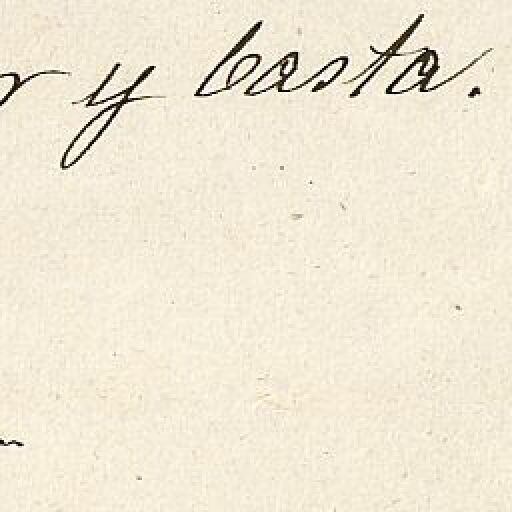 y basta.